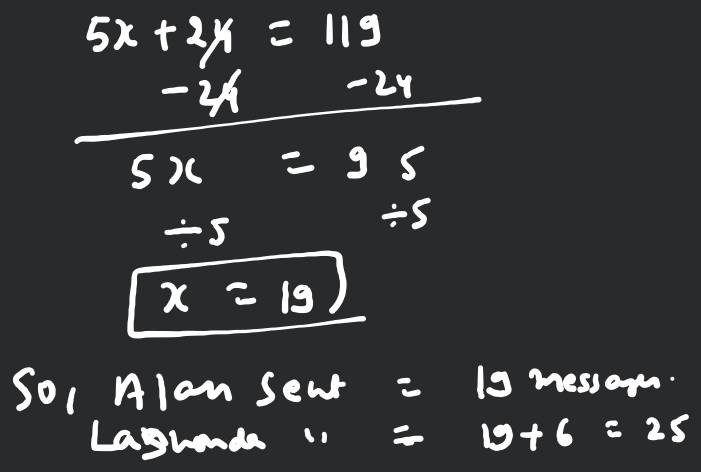 5x + 24 = 119
-24 -24
5x = 95
÷5 ÷5
x = 19
So, Alan sent = 19 messages.
Lashonda " = 19+6 = 25